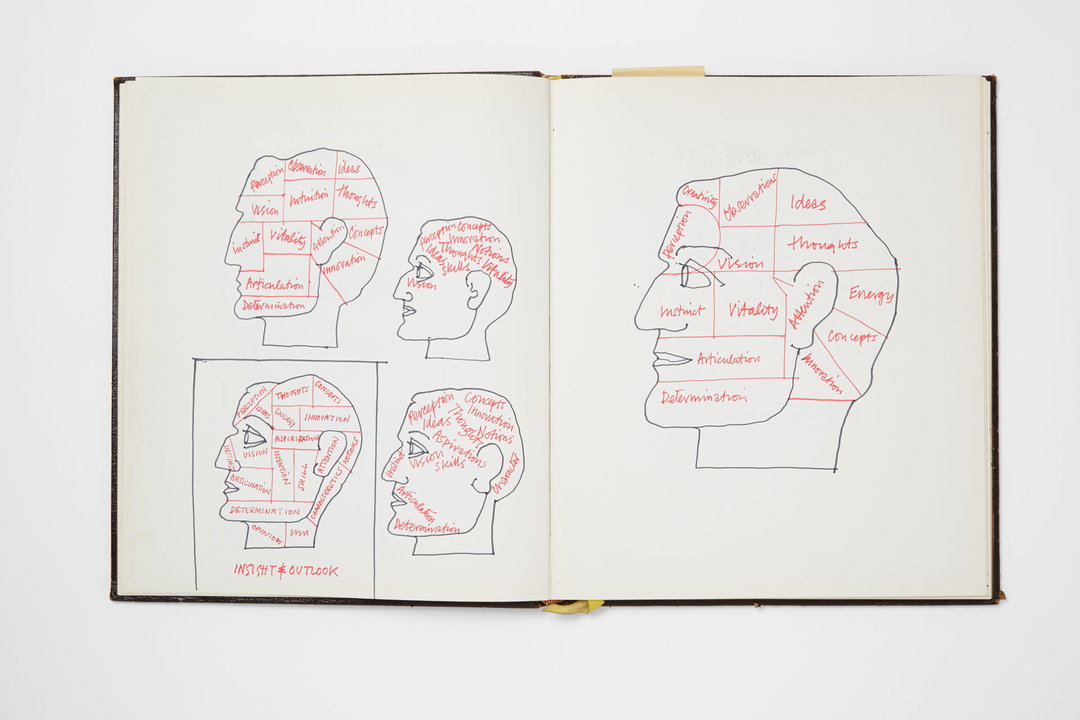 Perception Observation Ideas
Vision Intuition Thoughts
Instinct Vitality Attention Concepts
Innovation
Articulation
Determination
Perception Concepts
Innovation
Thoughts Notions
Ideas Skills Vitality
Vision
PERCEPTION THOUGHTS CONCEPTS
IDEAS ENERGY INNOVATION
VISION
INSTINCT
SKILL ATTENTION NOTIONS
ARTICULATION
DETERMINATION
OPINION
INSIGHT & OUTLOOK
Perception Concepts
Innovation
Ideas Thoughts Notions
Aspirations
Instinct Vision Skills
Character
Articulation
Determination
Creativity Observations Ideas
Perception Thoughts
Vision
Instinct Vitality Attention Energy
Concepts
Articulation Innovation
Determination